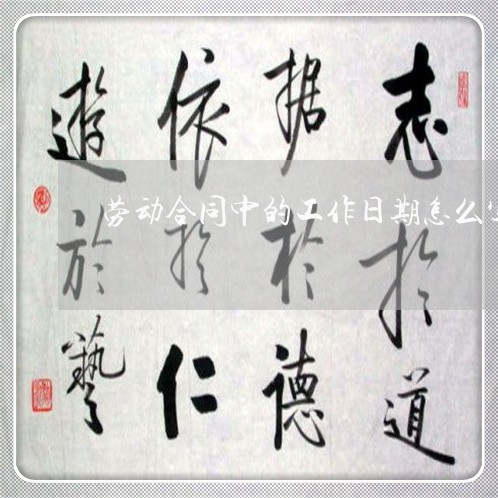 志於道
据於德
依於仁
遊於藝
劳动合同中的工作日期怎么